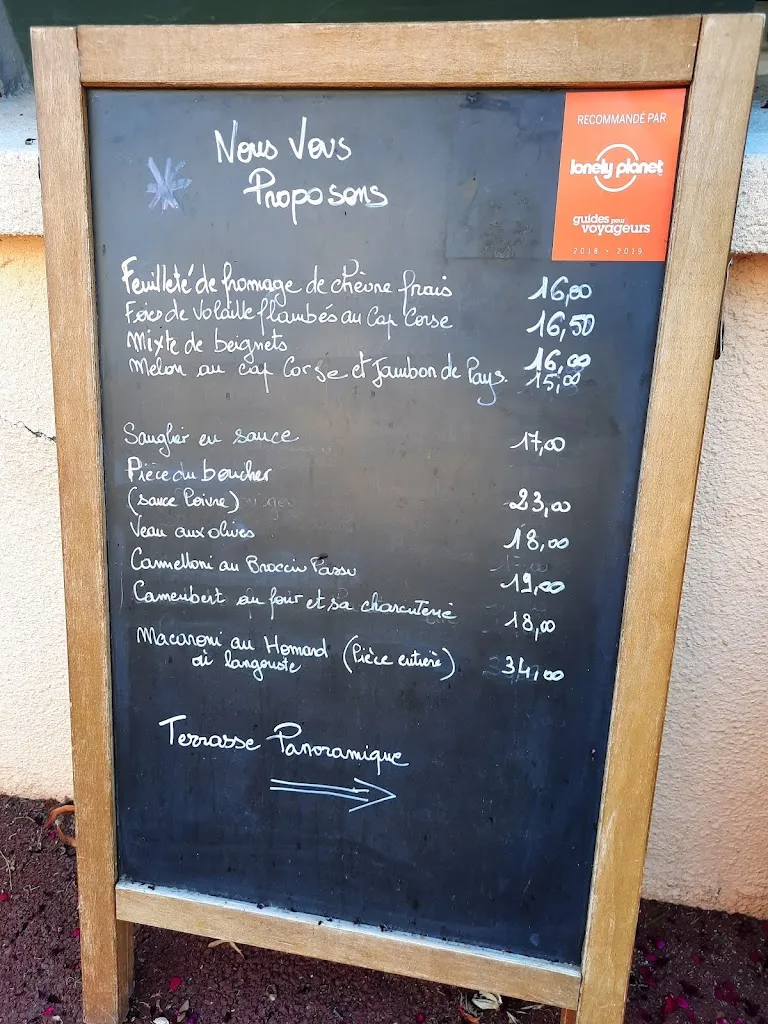 Nous Vous
Proposons
RECOMMANDÉ PAR
lonely planet
guides pour
voyageurs
2018 • 2019
Feuilleté de fromage de chèvre frais 16,00
Foies de Volaille flambés au Cap Corse 16,50
Mixte de beignets 16,00
Melon au cap Corse et Jambon de Pays. 15,00
Sanglier en sauce 17,00
Pièce du boucher
(sauce Poivre) 23,00
Veau aux olives 18,00
Cannelloni au Brocciu Passu 19,00
Camembert au four et sa charcuterie 18,00
Macaroni au Homard (Pièce entière) 34,00
où langouste
Terrasse Panoramique